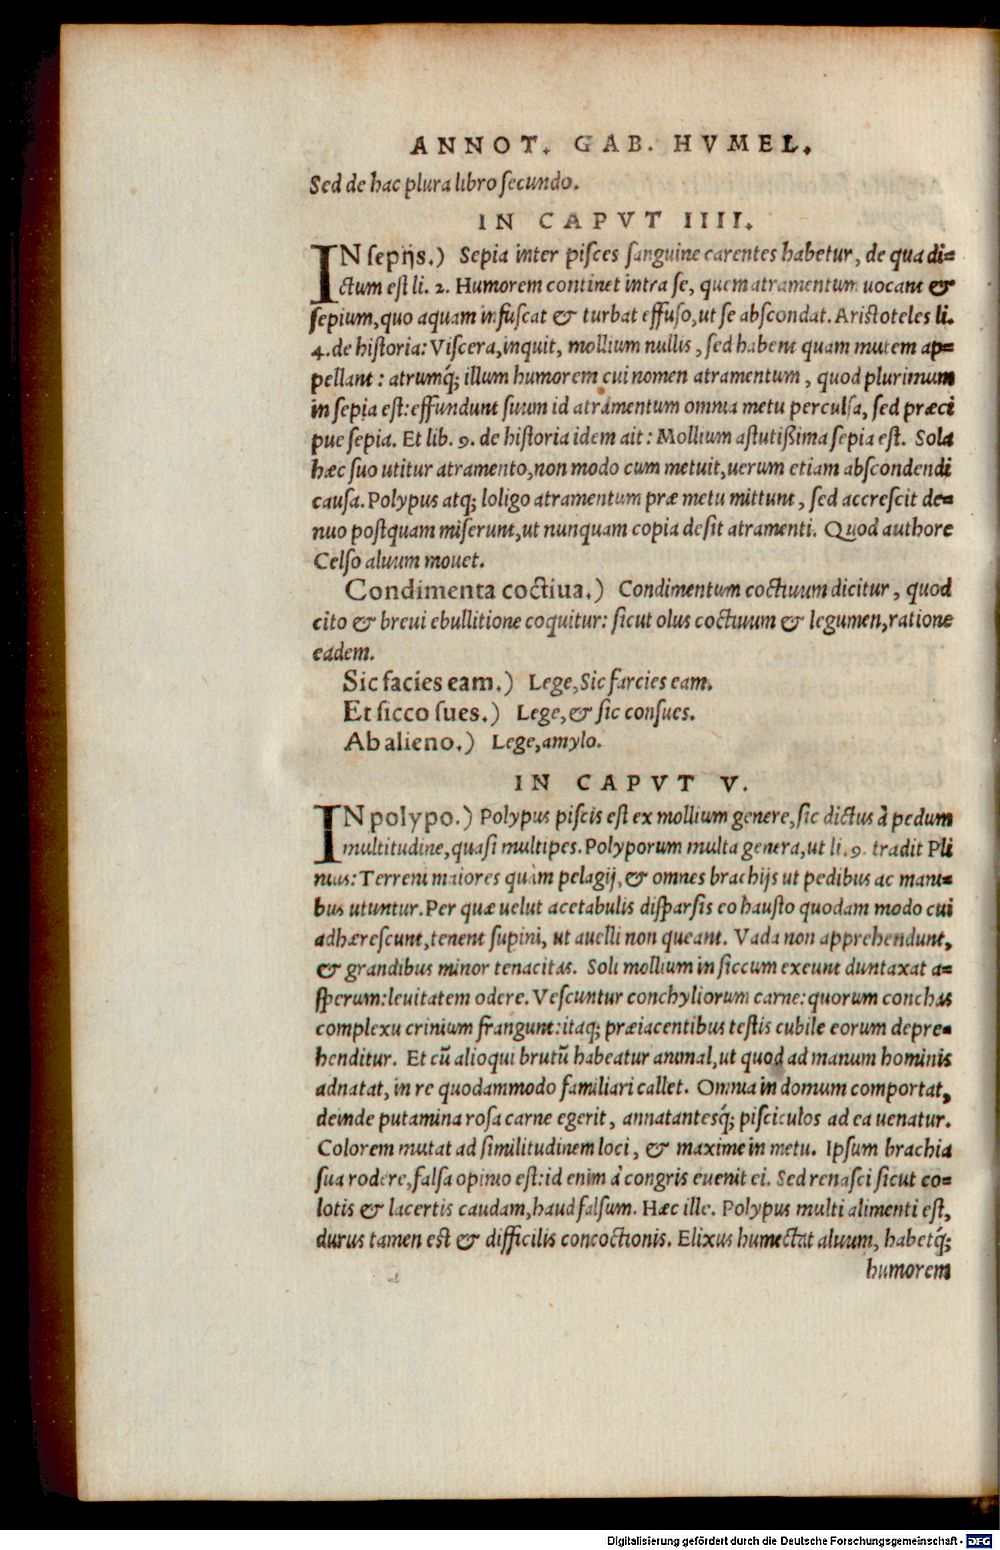 ANNOT. GAB. HVMEL.
Sed de hac plura libro secundo.
IN CAPVT IIII.
IN sepijs.) Sepia inter pisces sanguine carentes habetur, de qua di=
ctum est li. 2. Humorem continet intra se, quem atramentum uocant &
sepium, quo aquam infuscat & turbat effuso, ut se abscondat. Aristoteles li.
4. de historia: Viscera, inquit, mollium nullis, sed habent quam mutem ap=
pellant: atrumq́; illum humorem cui nomen atramentum, quod plurimum
in sepia est: effundunt suum id atramentum omnia metu perculsa, sed præci
pue sepia. Et lib. 9. de historia idem ait: Mollium astutißima sepia est. Sola
hæc suo utitur atramento, non modo cum metuit, uerum etiam abscondendi
causa. Polypus atq; loligo atramentum præ metu mittunt, sed accrescit de=
nuo postquam miserunt, ut nunquam copia desit atramenti. Quod authore
Celso aluum mouet.
Condimenta coctiua.) Condimentum coctiuum dicitur, quod
cito & breui ebullitione coquitur: sicut olus coctiuum & legumen, ratione
eadem.
Sic facies eam.) Lege, Sic farcies eam.
Et sicco sues.) Lege, & sic consues.
Ab alieno.) Lege, amylo.
IN CAPVT V.
IN polypo.) Polypus piscis est ex mollium genere, sic dictus à pedum
multitudine, quasi multipes. Polyporum multa genera, ut li. 9. tradit Pli
nius: Terreni maiores quàm pelagij, & omnes brachijs ut pedibus ac mani=
bus utuntur. Per quæ uelut acetabulis disparsis eo hausto quodam modo cui
adhærescunt, tenent supini, ut auelli non queant. Vada non apprehendunt,
& grandibus minor tenacitas. Soli mollium in siccum exeunt duntaxat a=
sperum: leuitatem odere. Vescuntur conchyliorum carne: quorum conchas
complexu crinium frangunt: itaq; præiacentibus testis cubile eorum depre=
henditur. Et cũ alioqui brutũ habeatur animal, ut quod ad manum hominis
adnatat, in re quodammodo familiari callet. Omnia in domum comportat,
deinde putamina rosa carne egerit, annatantesq́; pisciculos ad ea uenatur.
Colorem mutat ad similitudinem loci, & maxime in metu. Ipsum brachia
sua rodere, falsa opinio est: id enim à congris euenit ei. Sed renasci sicut co=
lotis & lacertis caudam, haud falsum. Hæc ille. Polypus multi alimenti est,
durus tamen est & difficilis concoctionis. Elixus humectat aluum, habetq́;
humorem
Digitalisierung gefördert durch die Deutsche Forschungsgemeinschaft - DFG